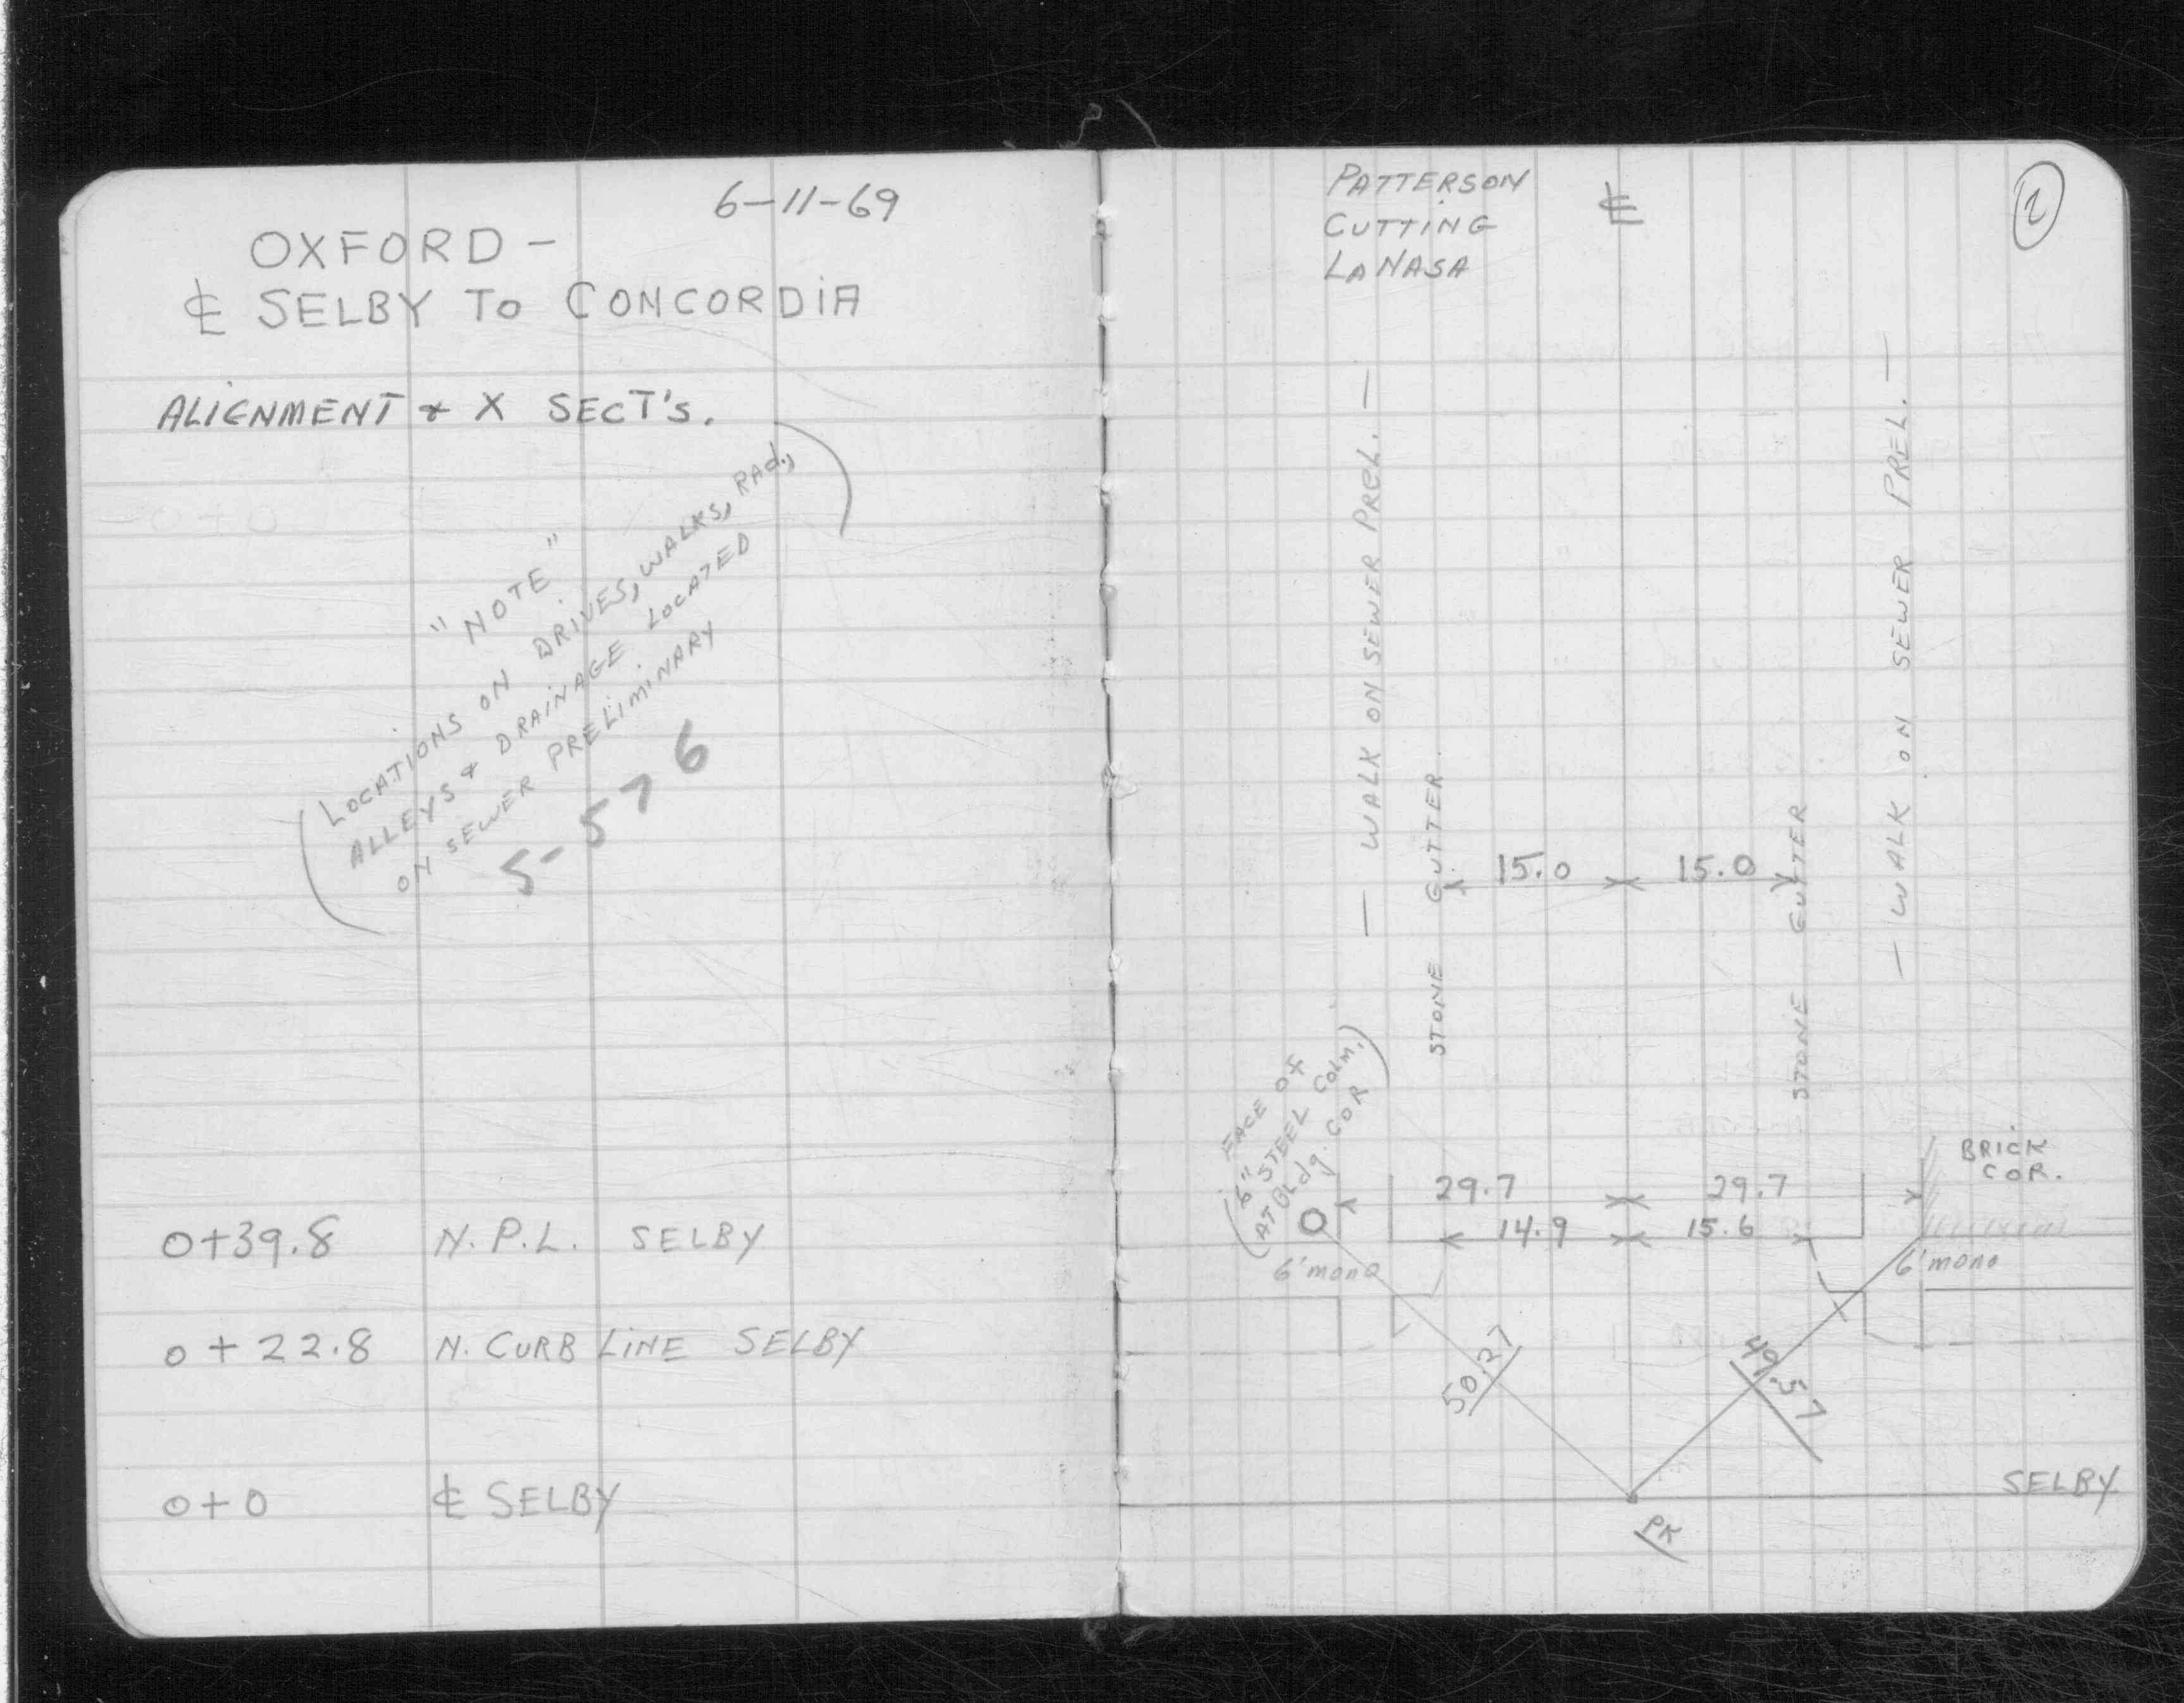 6-11-69
OXFORD -
℄ SELBY TO CONCORDIA
ALIGNMENT & X SECT'S.
"NOTE"
(LOCATIONS ON DRIVES, WALKS, RAD.,
ALLEYS & DRAINAGE LOCATED
ON SEWER PRELIMINARY)
5-576
0+39.8 N.P.L. SELBY
0+22.8 N. CURB LINE SELBY
0+0 ℄ SELBY
PATTERSON
CUTTING
LANASA
℄
2
— WALK ON SEWER PREL. —
— WALK ON SEWER PREL. —
STONE GUTTER
STONE GUTTER
15.0 15.0
FACE OF
(6" STEEL COLM.
AT BLDG. COR)
BRICK
COR.
29.7 29.7
14.9 15.6
6' mono
6' mono
50.27
49.57
SELBY
PK